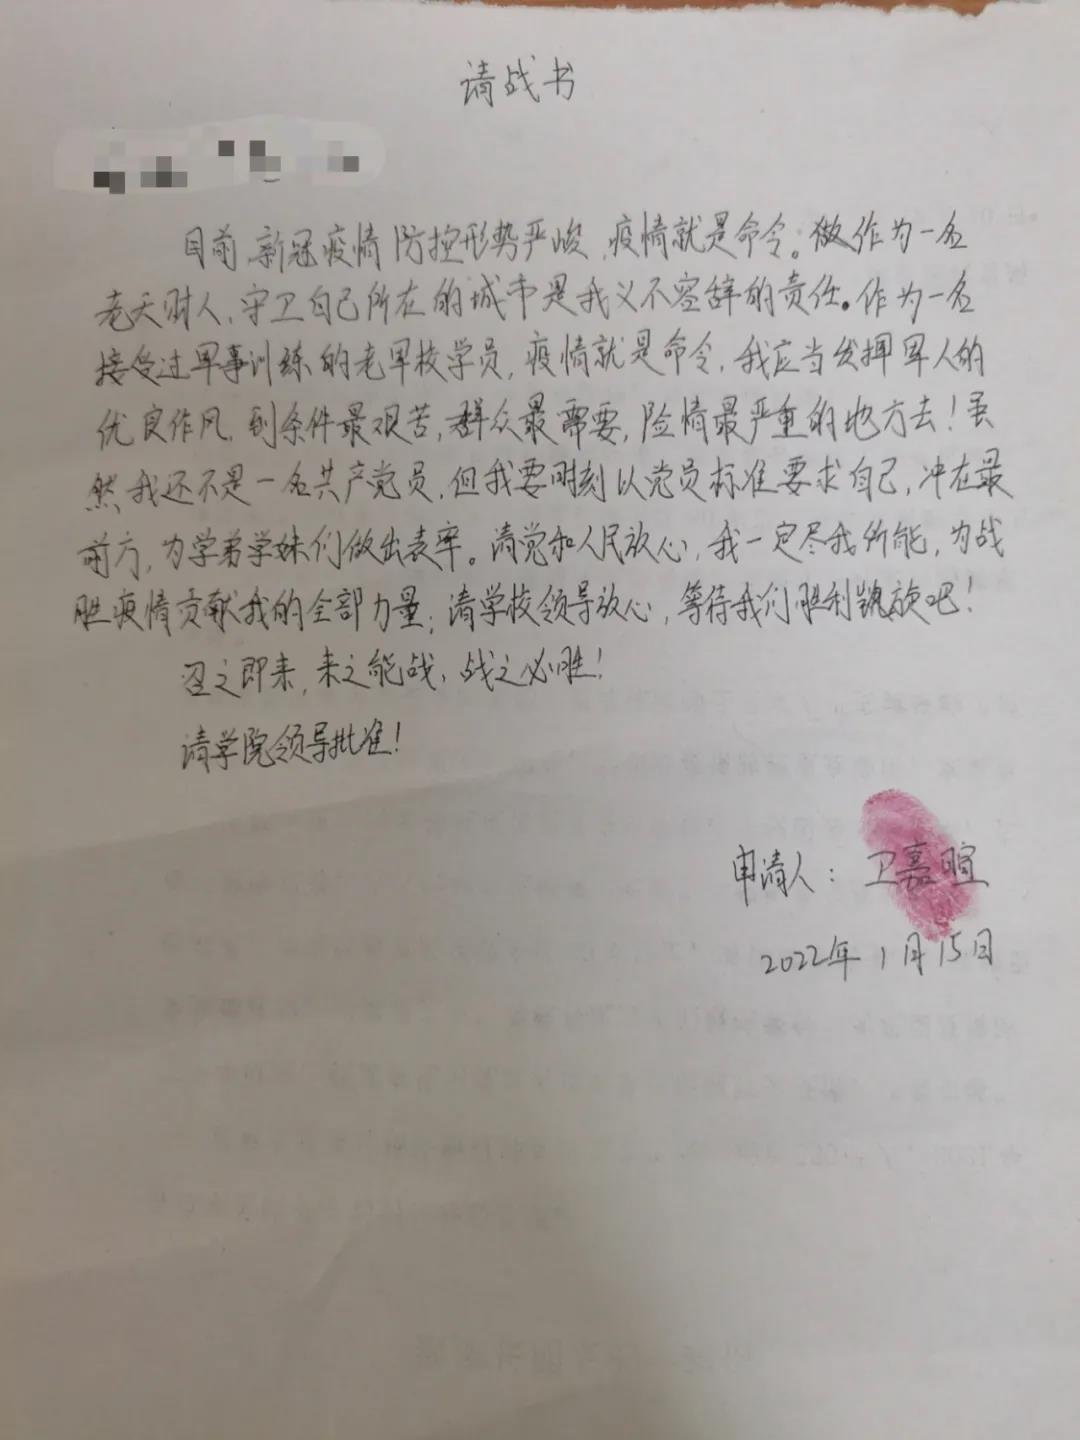 请战书
目前,新冠疫情防控形势严峻,疫情就是命令。做作为一名
老天财人,守卫自己所在的城市是我义不容辞的责任。作为一名
接受过军事训练的老军校学员,疫情就是命令,我应当发挥军人的
优良作风,到条件最艰苦,群众最需要,险情最严重的地方去!虽
然我还不是一名共产党员,但我要时刻以党员标准要求自己,冲在最
前方,为学弟学妹们做出表率。请党和人民放心,我一定尽我所能,为战
胜疫情贡献我的全部力量;请学校领导放心,等待我们胜利凯旋吧!
召之即来,来之能战,战之必胜!
请学院领导批准!
申请人:卫嘉暄
2022年1月15日